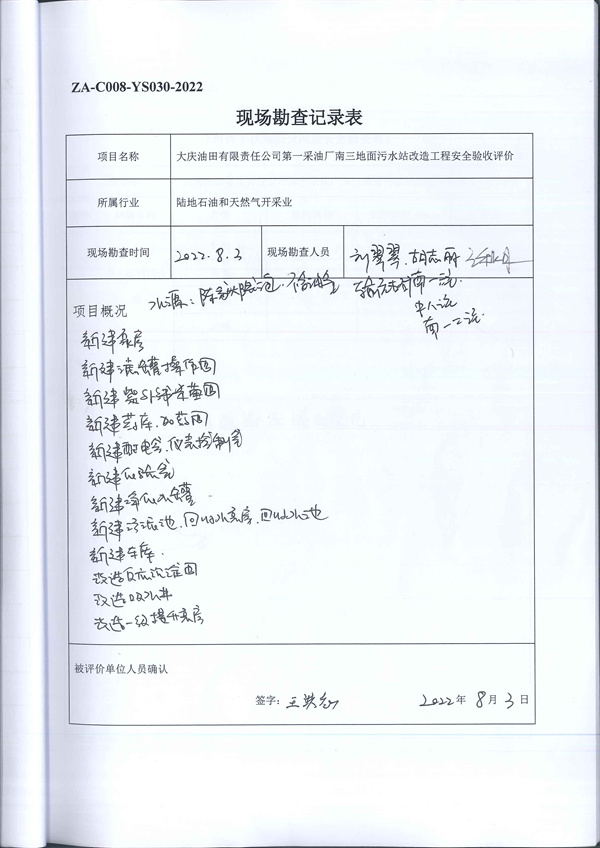 ZA-C008-YS030-2022
现场勘查记录表
项目名称 大庆油田有限责任公司第一采油厂南三地面污水站改造工程安全验收评价
所属行业 陆地石油和天然气开采业
现场勘查时间 2022.8.3 现场勘查人员 刘翠翠.胡志丽
项目概况 水源:
南一二污
新建泵房
新建滤罐操作间
新建紫外杀菌间
新建药库.加药间
新建配电室.仪表控制室
新建化验室
新建污泥池.回收水泵房.回收水池
新建车库.
改造反应沉淀间
改造吸水井
改造一级提升泵房
被评价单位人员确认
签字: 2022年 8月 3日